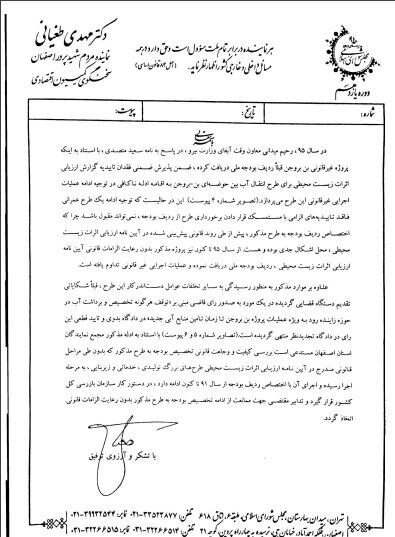 دکتر مهدی طغیانی
نماینده مردم شهید پرور اصفهان
سخنگوی کمیسیون اقتصادی
هر نماینده در برابر تمام ملت مسؤول است و حق دارد در همه
مسائل داخلی و خارجی کشور اظهار نظر نماید. (اصل ۸۴ قانون اساسی)
مجلس شورای اسلامی
دوره یازدهم
شماره:
تاریخ:
پیوست:
در سال ۹۵، رحیم میدانی معاون وقت آبفای وزارت نیرو، در پاسخ به نامه سعید متصدی، با استناد به اینکه
پروژه غیرقانونی بن بروجن قبلاً ردیف بودجه ملی دریافت کرده، ضمن پذیرش ضمنی فقدان تاییدیه گزارش ارزیابی
اثرات زیست محیطی برای طرح انتقال آب بین حوضه‌ای بن-بروجن به اقامه ادله ناکافی در توجیه ادامه عملیات
اجرایی غیرقانونی این طرح می‌پردازد.(تصویر شماره ۴ پیوست) این در حالیست که توجیه ادامه یک طرح عمرانی
فاقد تاییدیه‌های الزامی با مستمسک قرار دادن برخورداری طرح از ردیف بودجه، نمی‌تواند مقبول باشد. چرا که
اختصاص ردیف بودجه به طرح مذکور، پیش از طی روند قانونی پیش‌بینی شده در آیین نامه ارزیابی اثرات زیست
محیطی، محل اشکال جدی بوده و هست. از سال ۹۵ تا کنون نیز پروژه مذکور بدون رعایت الزامات قانونی آیین نامه
ارزیابی اثرات زیست محیطی، ردیف بودجه ملی دریافت نموده و عملیات اجرایی غیر قانونی تداوم یافته است.
علاوه بر موارد مذکور به منظور رسیدگی به سایر تخلفات عوامل دست‌اندرکار این طرح، قبلاً شکایاتی
تقدیم دستگاه قضایی گردیده در یک مورد به صدور رای قاضی مبنی بر «توقف هرگونه تخصیص و برداشت آب در
حوزه زاینده رود و به ویژه عملیات پروژه بن بروجن تا زمان تامین منابع آبی جدید» در دادگاه بدوی و تایید قطعی این
رای در دادگاه تجدیدنظر منتهی گردیده است.(تصاویر شماره ۵ و ۶ پیوست) با استناد به ادله مذکور مجمع نمایندگان
استان اصفهان مستدعی است بررسی کیفیت و وجاهت قانونی تخصیص بودجه به طرح مذکور که بدون طی مراحل
قانونی مندرج در آیین نامه ارزیابی اثرات زیست محیطی طرح‌های بزرگ تولیدی، خدماتی و زیربنایی، به مرحله
اجرا رسیده و اجرای آن با اختصاص ردیف بودجه از سال ۹۱ تا کنون ادامه دارد، در دستور کار سازمان بازرسی کل
کشور قرار گیرد و تدابیر مقتضی جهت ممانعت از ادامه تخصیص بودجه به طرح مذکور بدون رعایت الزامات قانونی
اتخاذ گردد.
با تشکر و آرزوی توفیق
تهران، میدان بهارستان، مجلس شورای اسلامی، طبقه ۶، اتاق ۶۱۸ تلفن: ۳۳۵۲۳۸۷۷-۰۲۱ فاکس: ۳۹۹۳۲۵۴۴-۰۲۱
اصفهان، فلکه احمدآباد، خیابان جی، نرسیده به چهارراه پروین، کوچه ۲۱ تلفن: ۳۲۲۶۶۵۱۴-۰۳۱ فاکس: ۳۲۲۶۶۵۱۵-۰۳۱